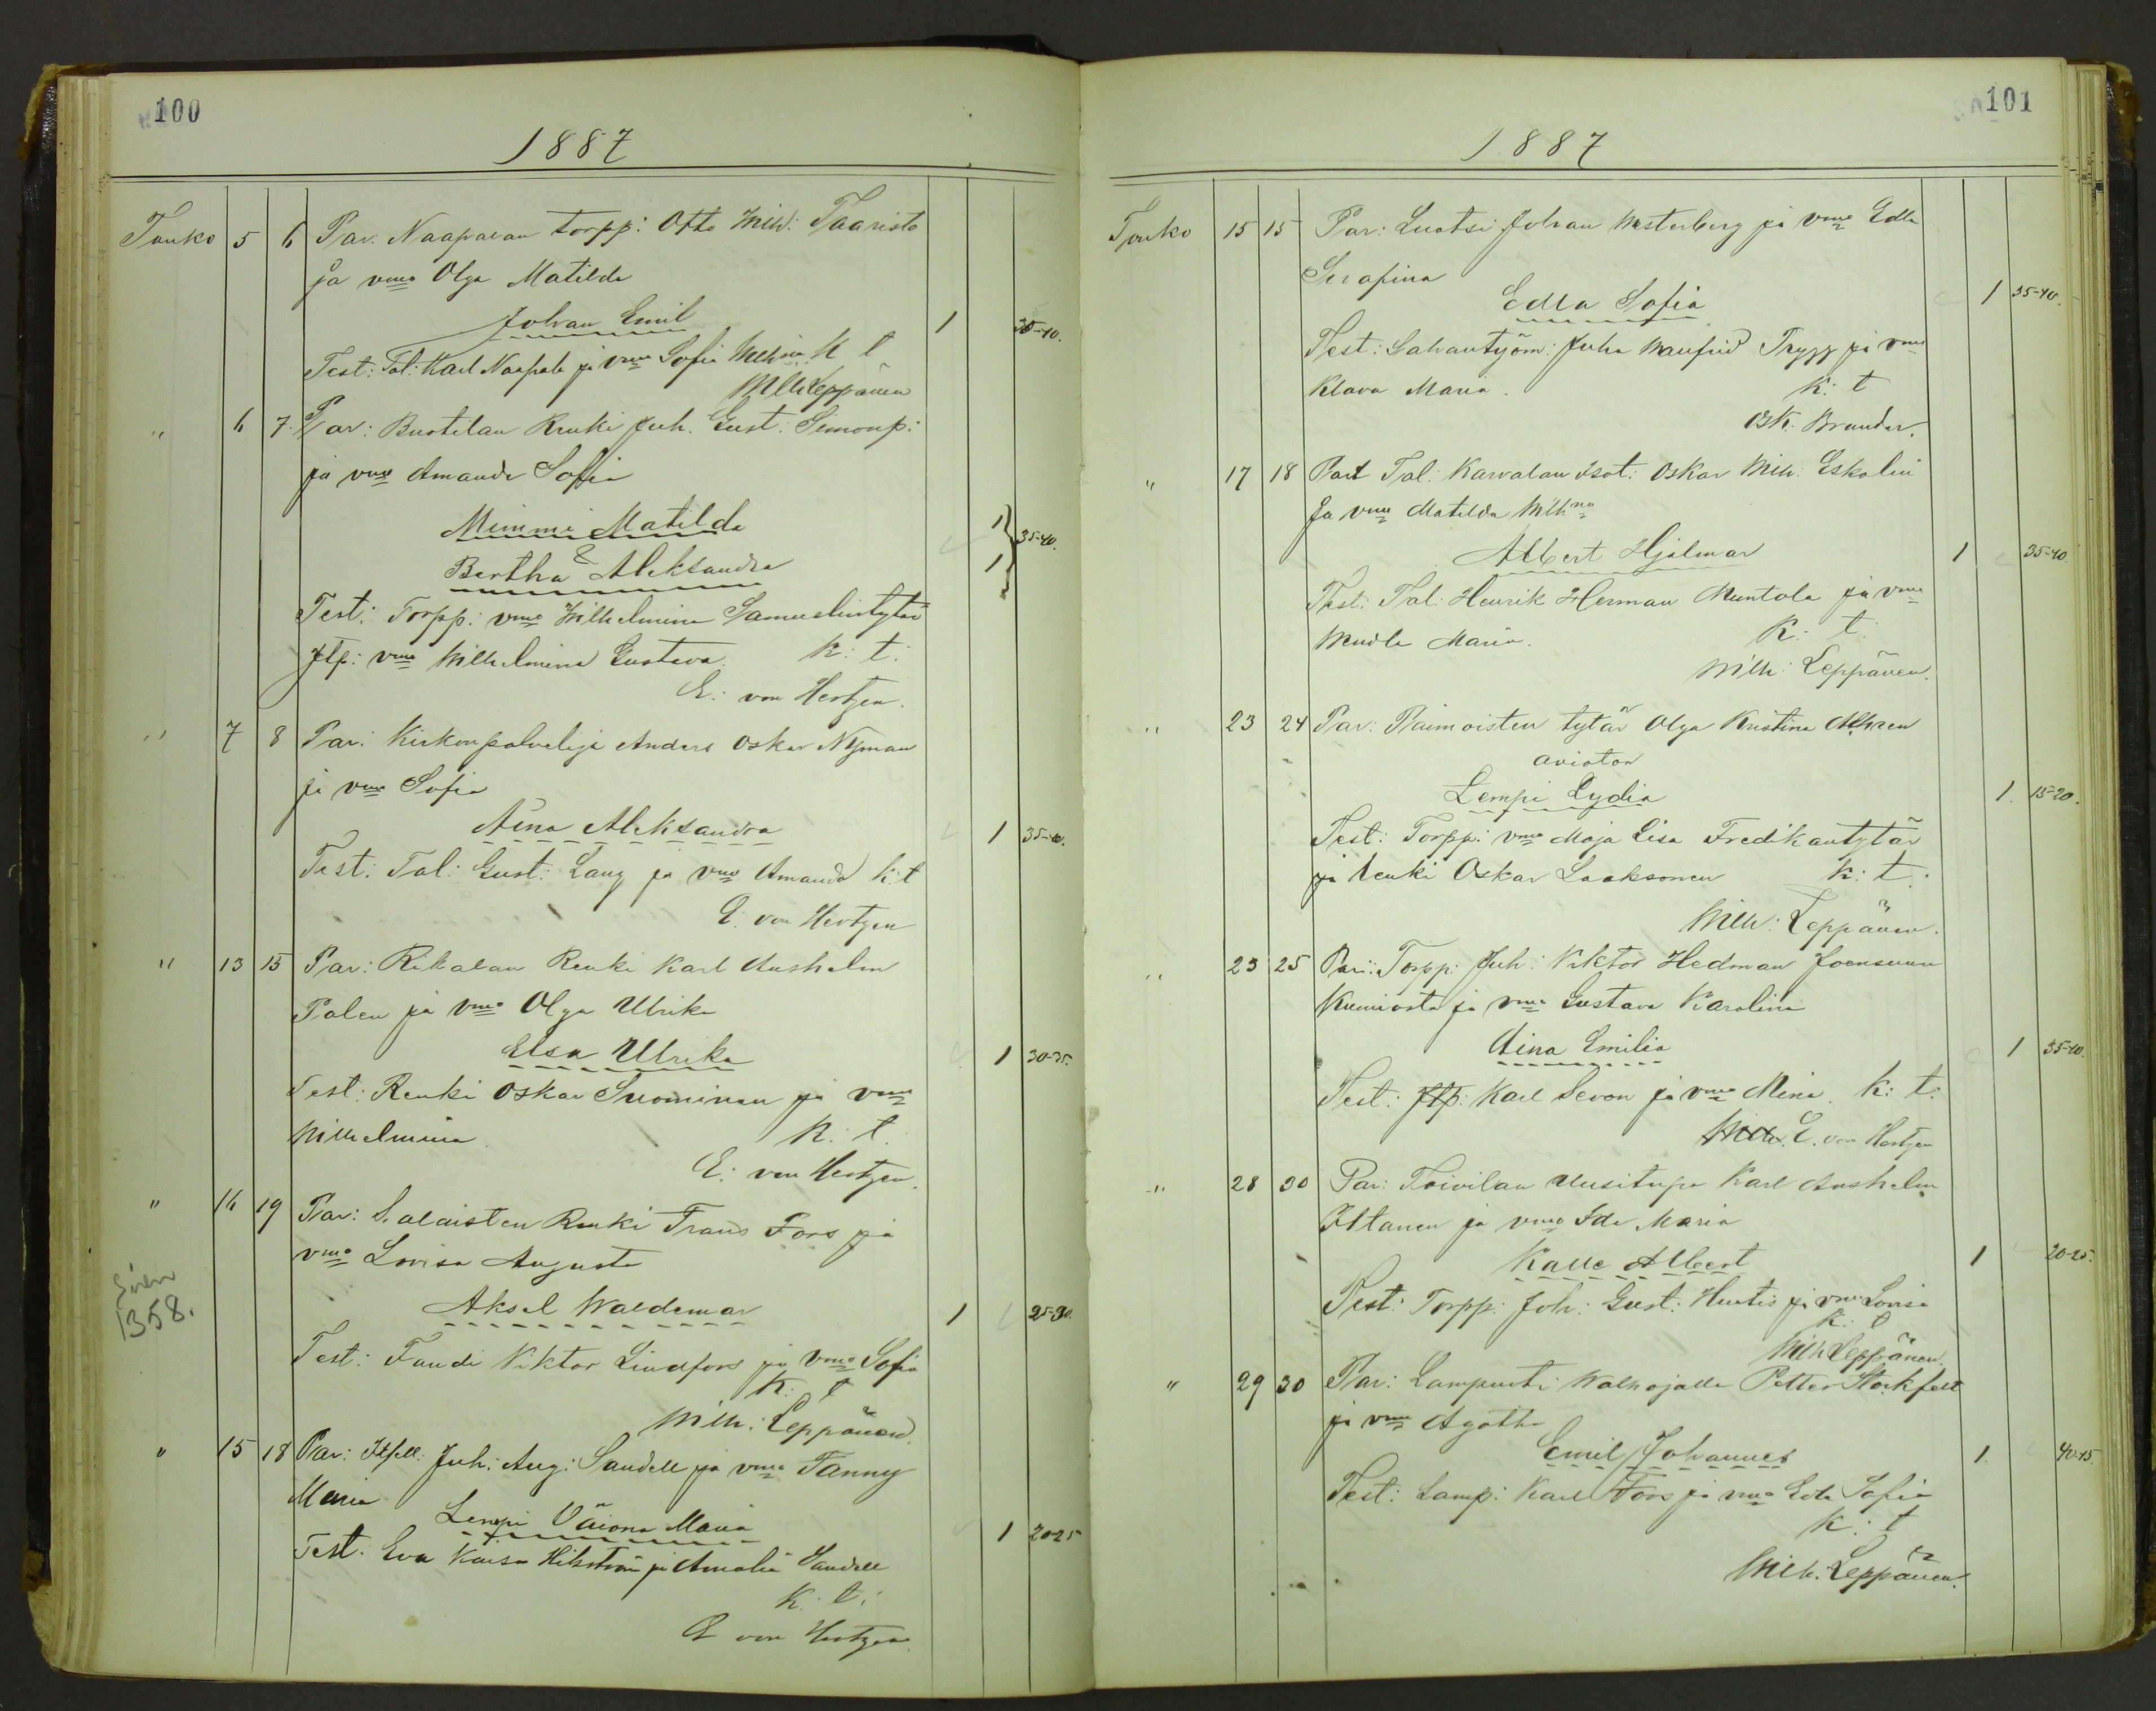 100
1887
Touko 5 6 Par. Naapalan torpp: Otto Wilh: Taaristo
ja vmo Olga Matilda
Johan Emil 1 35-40.
Test: Tal: Karl Naapala ja vmo Sofia Wilhna K t
Wilh Leppänen
" 6 7. Par: Buotilan Renki Juh. Gust: Simonp:
ja vmo Amanda Sofia
Mimmi Matilda 1
& 35-40.
Bertha Aleksandra 1
Test: Torpp: vmo Wilhelmina Samuelintytär
Itp: vmo Wilhelmina Gustava. K: t:
E: von Hertzen.
" 7 8 Par: Kirkonpalvelija Anders Oskar Nyman
ja vmo Sofia
Aina Aleksandra 1 35-40.
Test: Tal: Gust: Lang ja vmo Amanda k: t
E. von Hertzen
" 13 15 Par: Rikalan Renki Karl Anshelm
Palen ja vmo Olga Ulrika
Elsa Ulrika 1 30-35.
Test: Renki Oskar Suominen ja vmo
Wilhelmina. K: t.
E: von Hertzen.
" 16 19 Par: Salaisten Renki Frans Fors ja
vmo Lovisa Augusta
1358.
Aksel Waldemar 1 25-30.
Test: Faudi Viktor Lindfors ja vmo Sofia
K: t
Wilh: Leppänen.
" 15 18 Par: Itsell: Juh: Aug: Sandell ja vmo Fanny
Maria
Lempi Väiönä Maria 1 20-25
Test. Eva Kaisa ja Amalia Sandell
K: t:
E von Hertzen.
101
1887
Touko 15 15 Par: Luotsi Johan Westerberg ja vmo Edla
Serafina
Edla Sofia 1 35-40.
Test: Sahantyöm: Juha Manfrid Trygg ja vmo
Klara Maria. K: t
Osk. Brander.
" 17 18 Part Tal: Karvalan Isot: Oskar Wilh: Eskolin
ja vmo Matilda Wilhna
Albert Hjalmar 1 35-40
Test. Tal: Henrik Herman Muntola ja vmo
Wendla Maria. K: t:
Wilh: Leppänen.
" 23 24 Par: Paimoisten tytär Olga Kristina
avioton
Lempi Lydia 1. 15-20.
Test: Torpp: vmo Maja Lisa Fredikantytär
ja renki Oskar Laaksonen K: t:
Wilh: Leppänen.
" 23 25 Par: Torpp: Juh: Viktor Hedman Joensuun
Kumiosta ja vmo Gustava Karolina
Aina Emilia 1 35-40.
Test: Itp: Karl Sevon ja vmo Mina. K: t:
Wilh. E. von Hertzen
" 28 30 Par: Toivilan Uusitupa Karl Anshelm
Iltanen ja vmo Ida Maria
Kalle Albert 1 20-25.
Test: Torpp: Joh: Gust: Huntis ja vmo Lovisa
K: t
Wilh Leppänen.
" 29 30 Par: Lampuoti Walhojalla Petter Stockfelt
ja vmo Agatha
Emil Johannes 1. 40-45.
Test: Lamp: Karl Fors ja vmo Eva Sofia
K: t
Wilh. Leppänen.